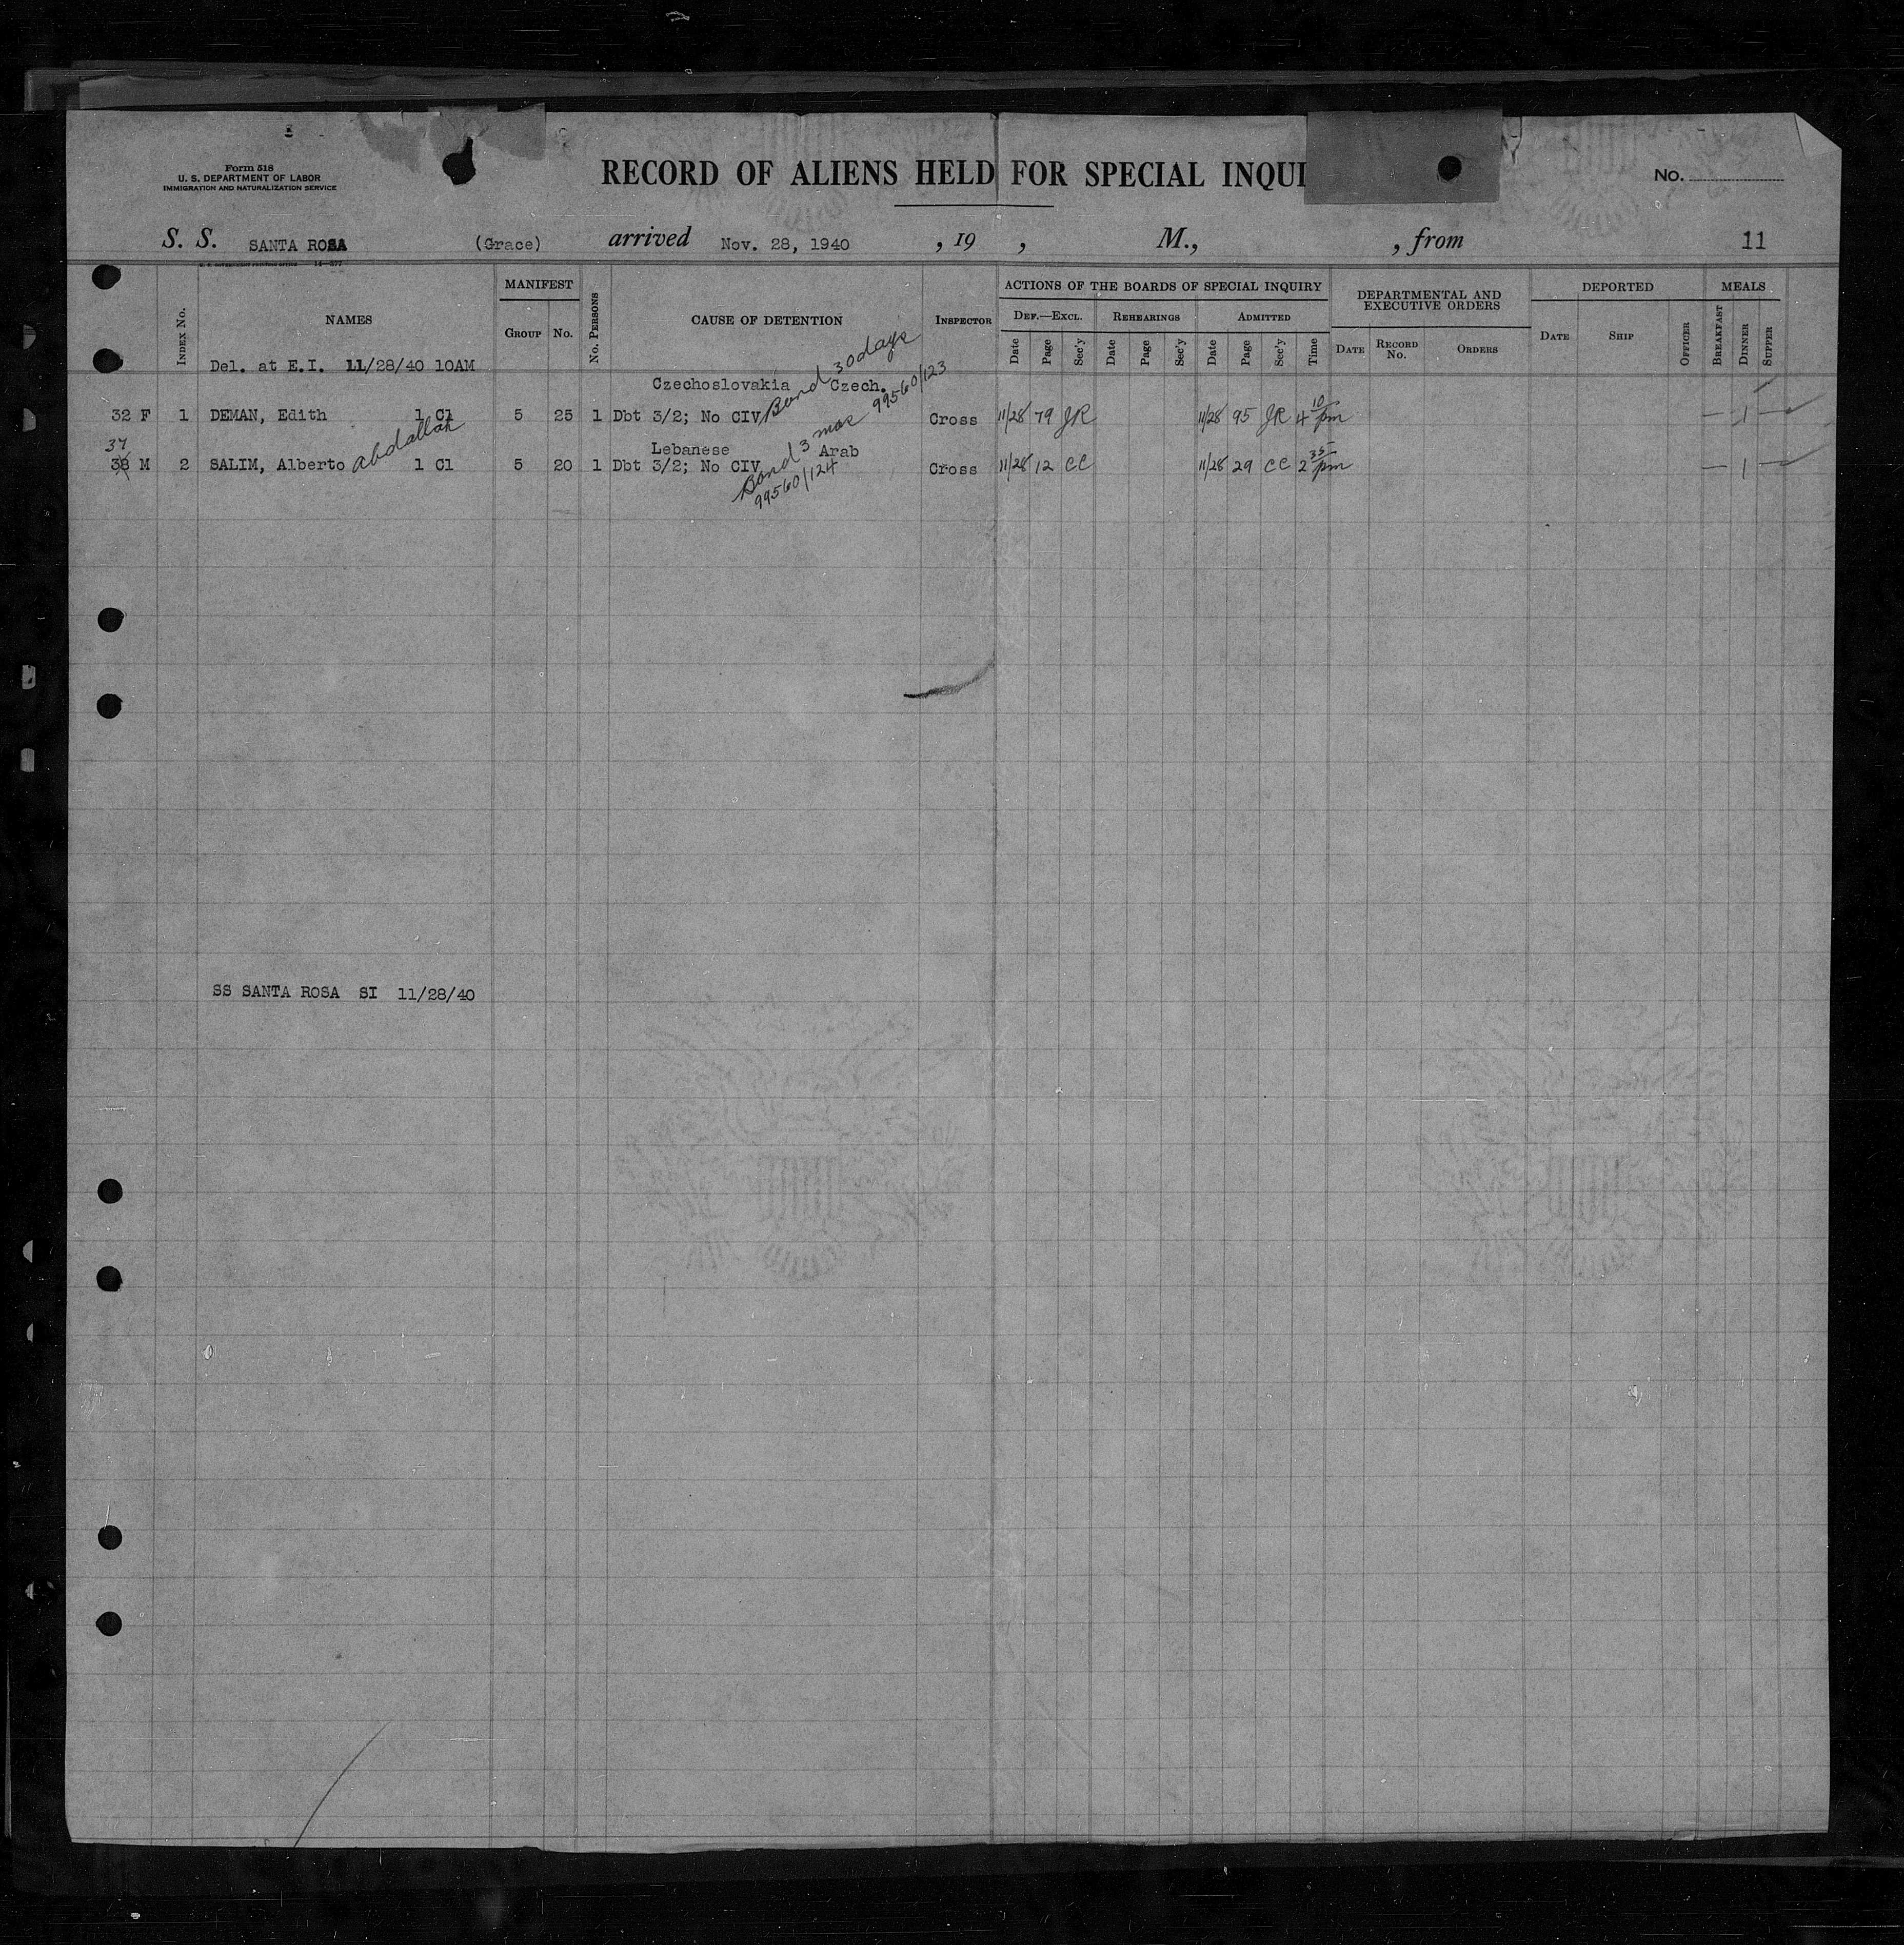 Form 518
U. S. DEPARTMENT OF LABOR
IMMIGRATION AND NATURALIZATION SERVICE
RECORD OF ALIENS HELD FOR SPECIAL INQUI
No.
S. S. SANTA ROSA (Grace) arrived Nov. 28, 1940 , 19 , M., , from 11
MANIFEST ACTIONS OF THE BOARDS OF SPECIAL INQUIRY DEPARTMENTAL AND EXECUTIVE ORDERS DEPORTED MEALS
Index No. NAMES Group No. No. Persons CAUSE OF DETENTION Inspector Def.—Excl. Rehearings Admitted
Date Page Sec'y Date Page Sec'y Date Page Sec'y Time Date Record No. Orders Date Ship Officer Breakfast Dinner Supper
Del. at E.I. 11/28/40 10AM
Czechoslovakia Czech. Bond 30 days 99560/123
32 F 1 DEMAN, Edith 1 Cl 5 25 1 Dbt 3/2; No CIV Cross 11/28 79 JR 11/28 95 JR 4 10 pm — 1 —
37
Lebanese Arab Bond 3 mos
38 M 2 SALIM, Alberto Abdallah 1 Cl 5 20 1 Dbt 3/2; No CIV Cross 11/28 12 CC 11/28 29 CC 2 35 pm — 1 —
99560/124
SS SANTA ROSA SI 11/28/40